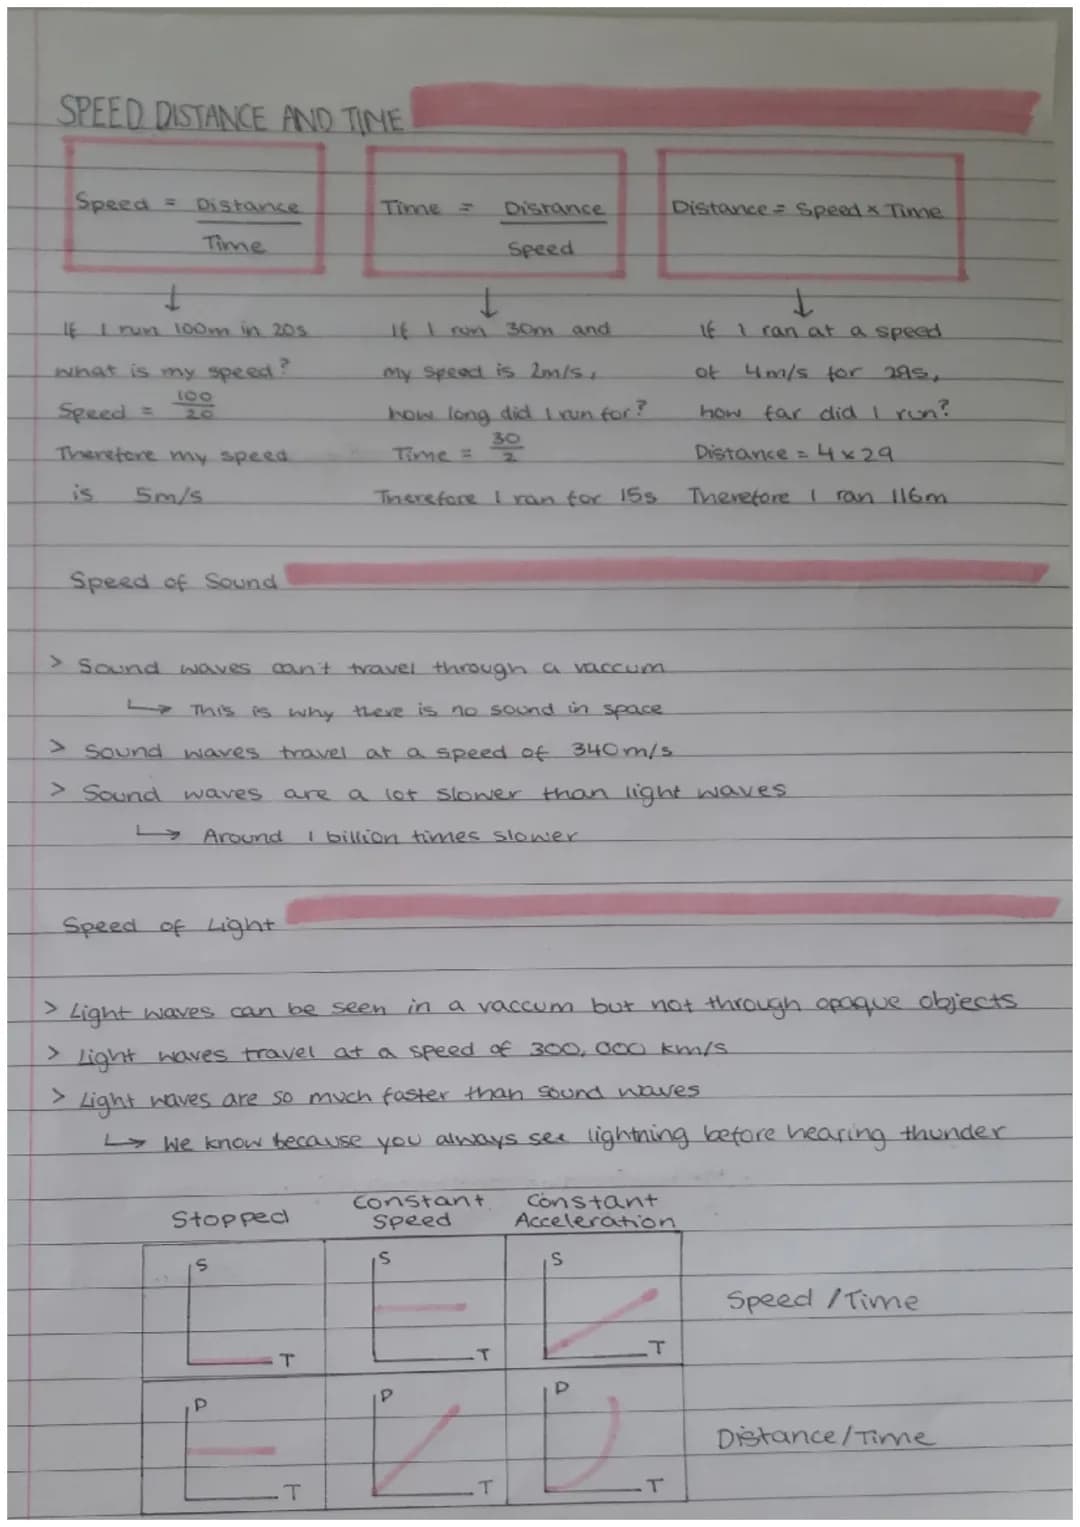 SPEED DISTANCE AND TIME
Speed = Distance
Time
Time = Distance
Speed
Distance = Speed x Time
↓
If I run 100m in 20s
what is my speed?
Speed = 100/20
Therefore my speed
is 5m/s
↓
If I run 30m and
my speed is 2m/s,
how long did I run for?
Time = 30/2
Therefore I ran for 15s
↓
If I ran at a speed
of 4m/s for 29s,
how far did I run?
Distance = 4 x 29
Therefore I ran 116m
Speed of Sound
> Sound waves can't travel through a vaccum
↳ This is why there is no sound in space
> Sound waves travel at a speed of 340m/s
> Sound waves are a lot slower than light waves
↳ Around 1 billion times slower
Speed of Light
> Light waves can be seen in a vaccum but not through opaque objects
> Light waves travel at a speed of 300,000 km/s
> Light waves are so much faster than sound waves
↳ We know because you always see lightning before hearing thunder
Stopped
Constant
Speed
Constant
Acceleration
S
T
S
T
S
T
Speed / Time
D
T
D
T
D
T
Distance / Time